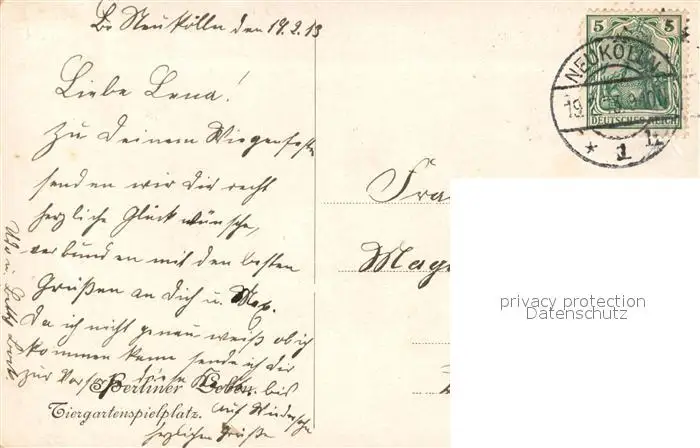 B. Neukölln den 19.2.13
Liebe Lena!
Zu Deinem Wiegenfeste
senden wir Dir recht
herzliche Glückwünsche,
verbunden mit den besten
Grüßen an Dich u. Max.
Da ich nicht genau weiß ob ich
kommen kann sende ich dir
zur Vorsorge diese Karte. bis
auf Wiedersehn
herzlichen Grüße
Berliner Leben.
Tiergartenspielplatz.
Fra
Mage
5 5
DEUTSCHES REICH
NEUKÖLLN
19.
9-10
* 1
privacy protection
Datenschutz